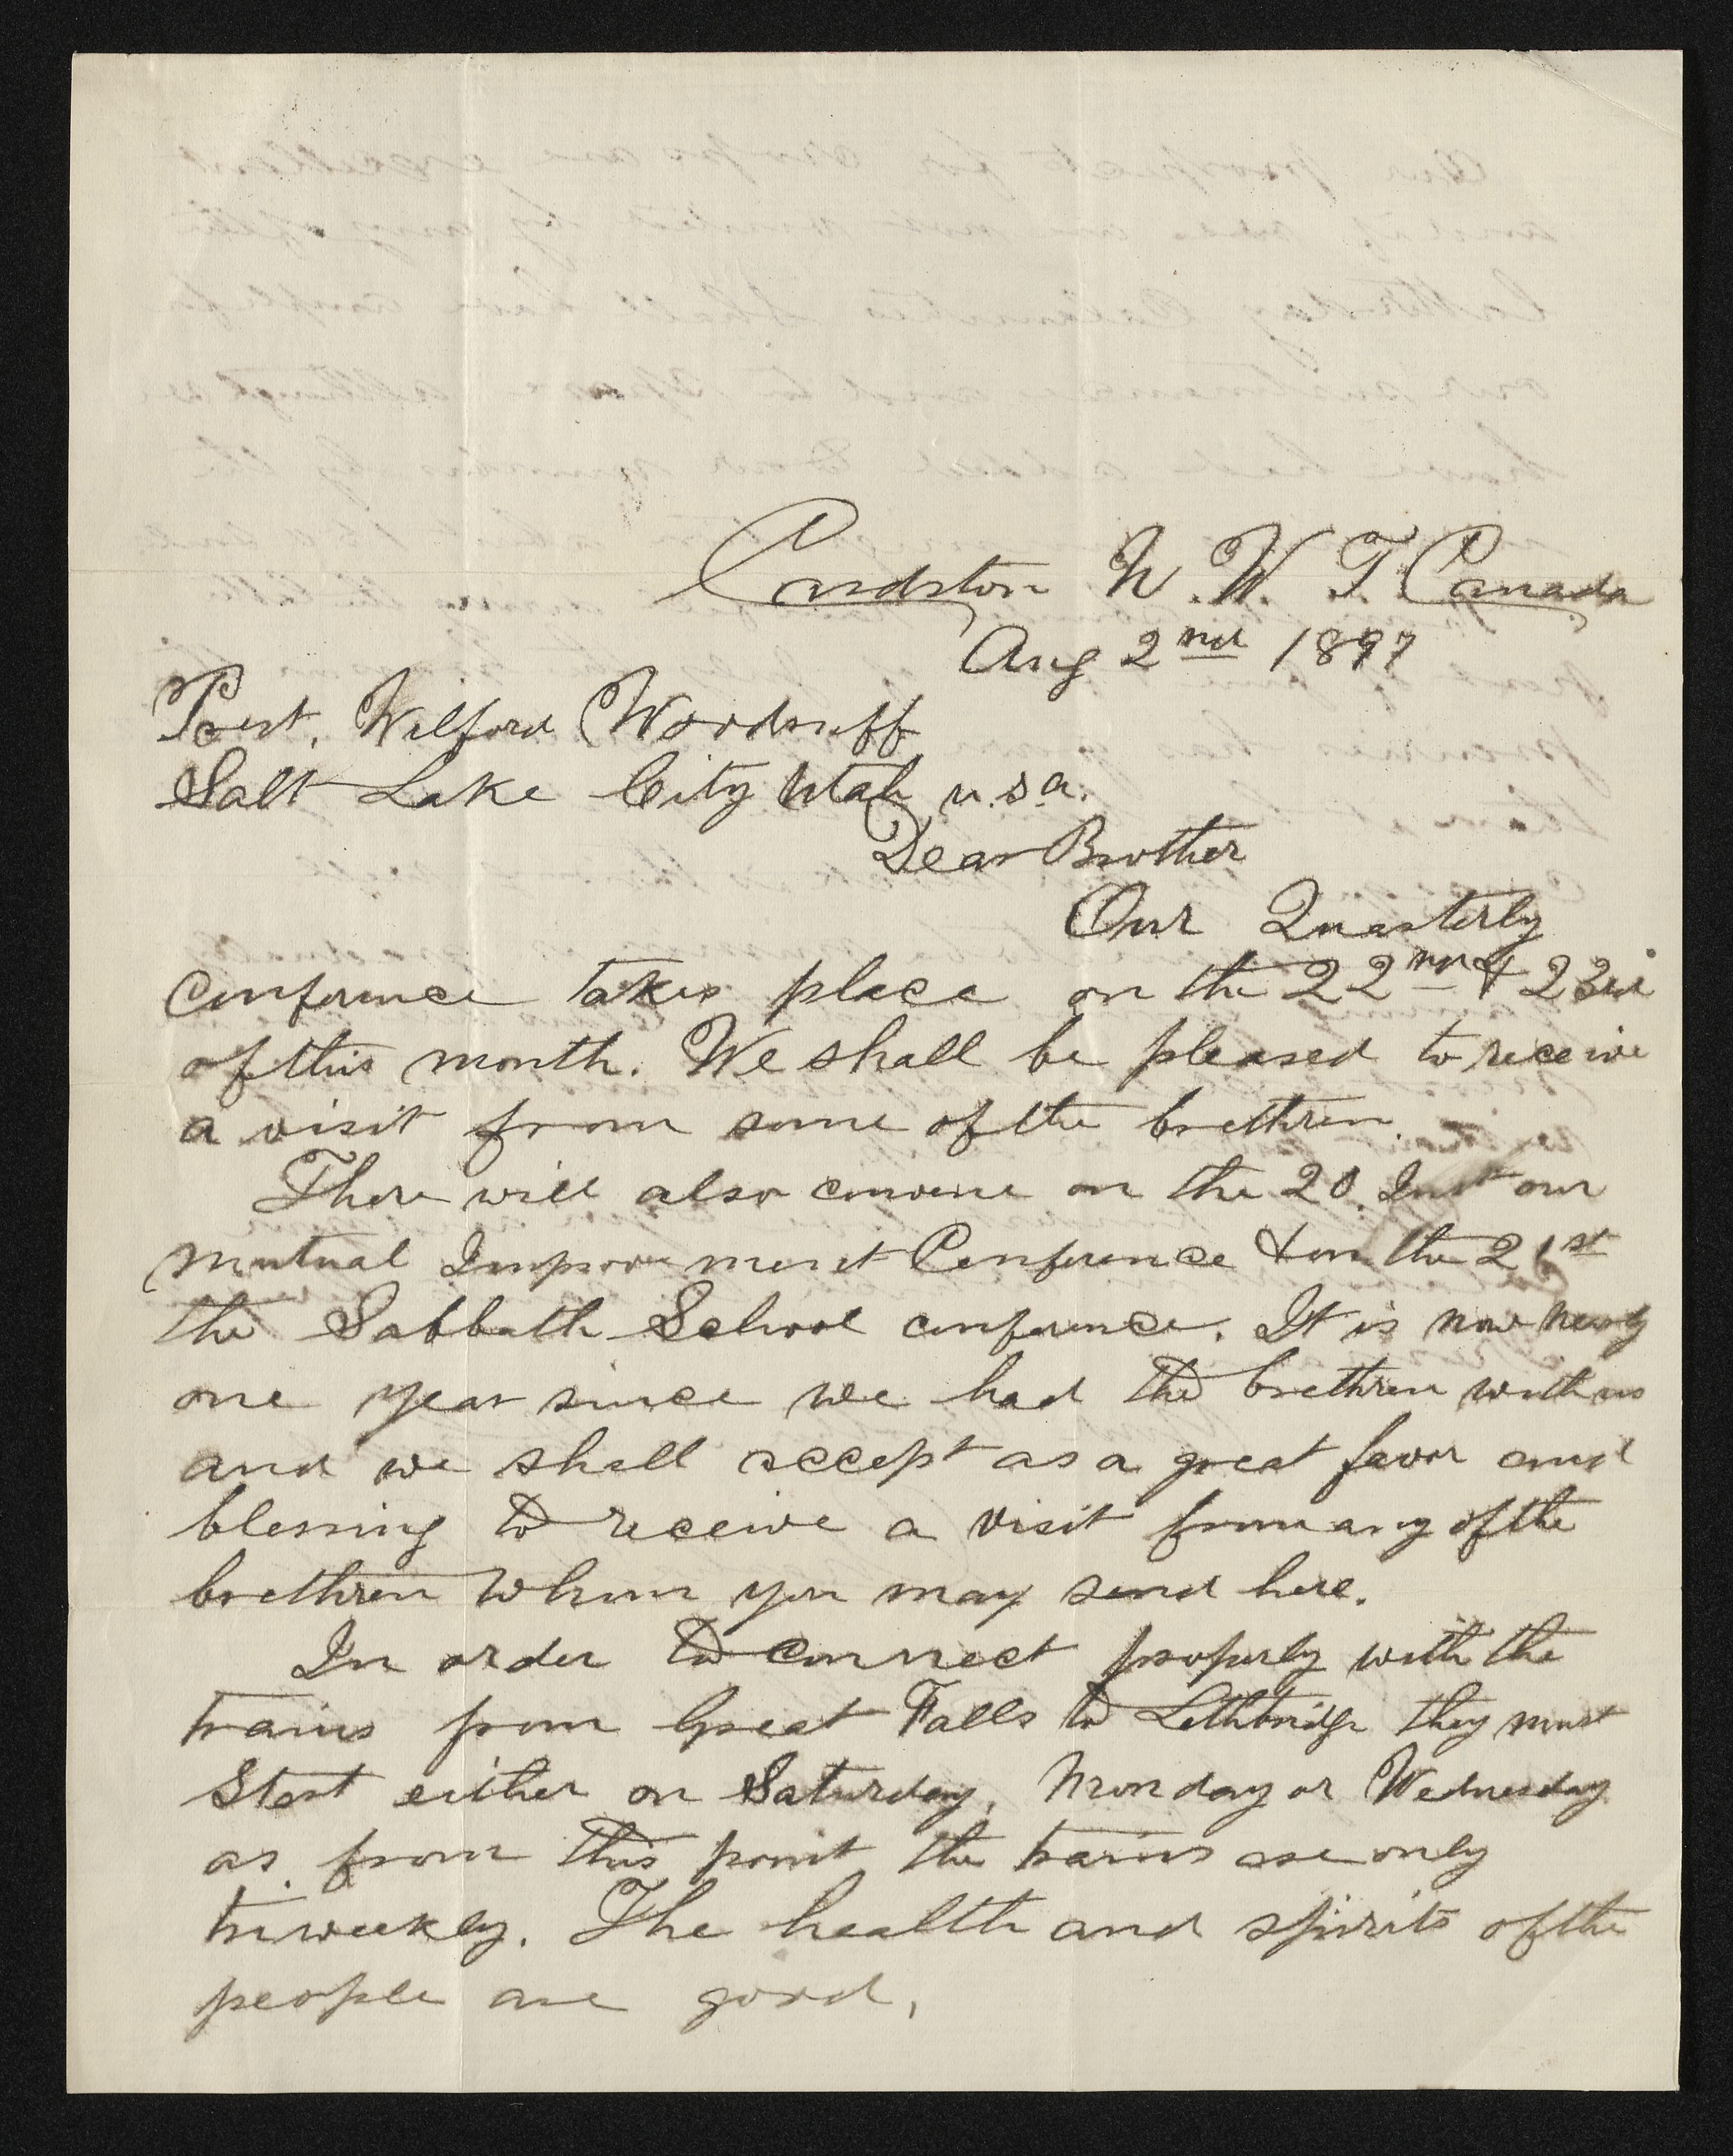 Cardston N. W. T. Canada
Aug 2nd 1897
Prest. Wilford Woodruff
Salt Lake City Utah U.S.A.
Dear Brother
Our Quarterly
conference takes place on the 22nd & 23rd
of this month. We shall be pleased to receive
a visit from some of the brethren.
There will also convene on the 20 Inst our
Mutual Improvement Conference & on the 21st
the Sabbath School conference. It is now nearly
one year since we had the brethren with us
and we shall accept as a great favor and
blessing to receive a visit from any of the
brethren whom you may send here.
In order to connect properly with the
trains from Great Falls to Lethbridge they must
Start either on Saturday, Monday or Wednesday
as from this point the trains are only
triweekly. The health and spirits of the
people are good,